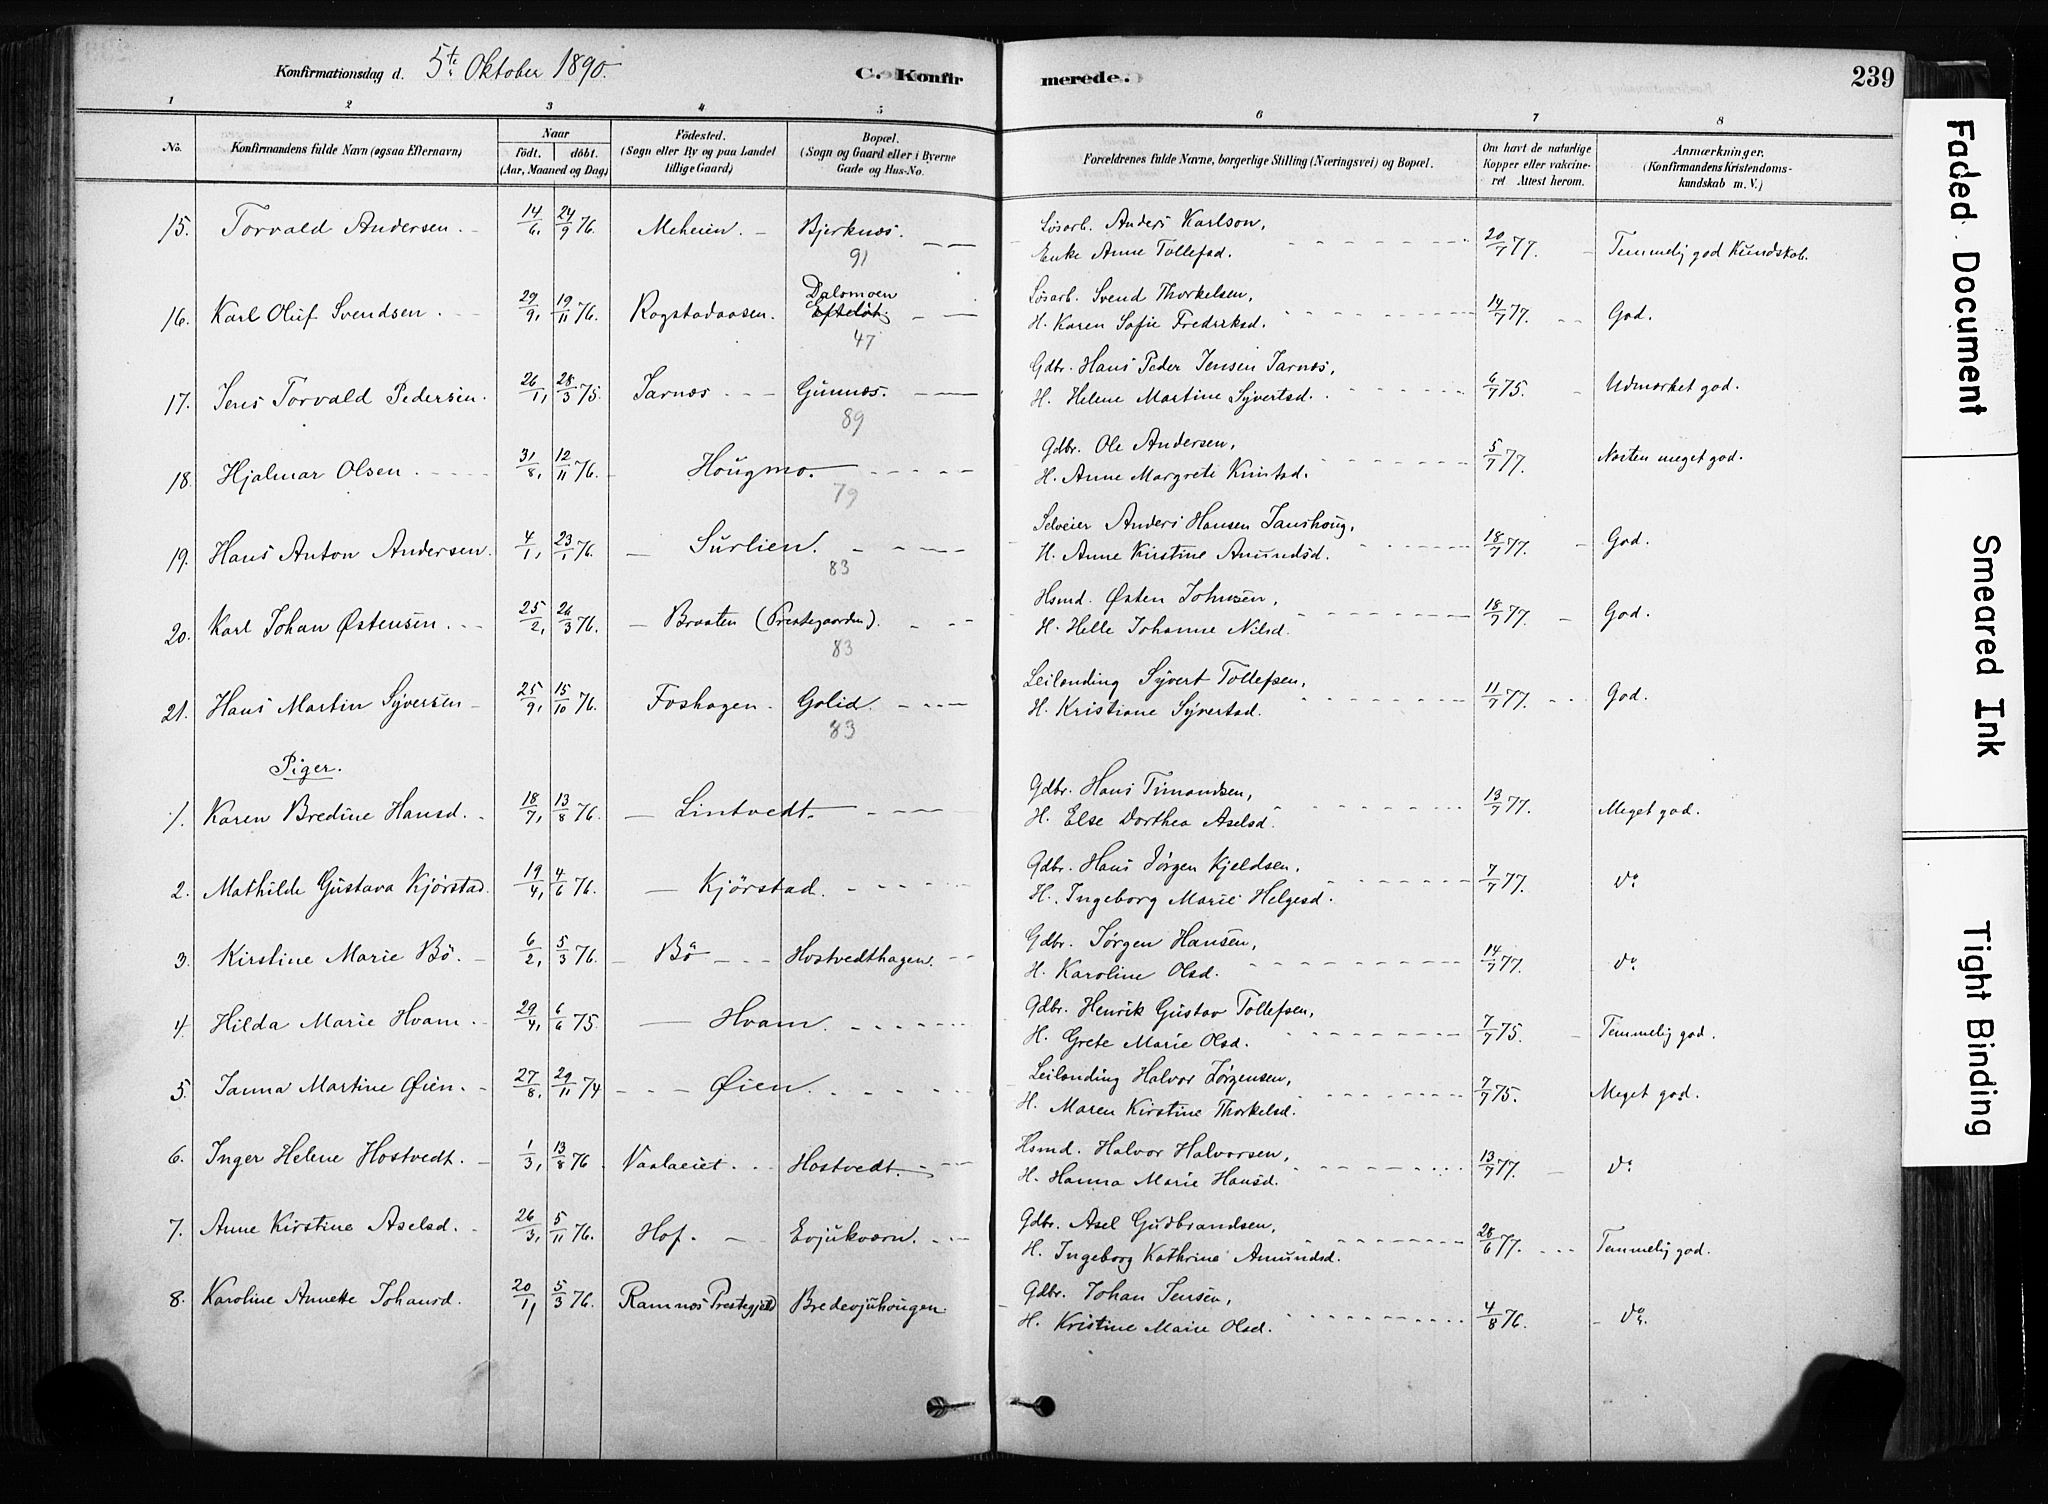 Konfirmationsdag d. 5te Oktober 1890. C. Konfirmerede. 239
1 2 3 4 5 6 7 8
No. Konfirmandens fulde Navn (ogsaa Efternavn) Naar født. døbt. (Aar, Maaned og Dag) Fødested. (Sogn eller By og paa Landet tillige Gaard) Bopæl. (Sogn og Gaard eller i Byerne Gade og Hus-No. Forældrenes fulde Navne, borgerlige Stilling (Næringsvei) og Bopæl. Om havt de naturlige Kopper eller vakcineret Attest herom. Anmærkninger. (Konfirmandens Kristendomskundskab m. V.)
15. Torvald Andersen. 14/6, 24/9 76. Meheien. Bjerknæs. 91 Løsarb. Anders Karlson, 20/7 77. Temmelig god Kundskab.
Enke Anne Tollefsd.
16. Karl Oluf Svendsen. 29/9, 19/11 76. Rogstadaasen. Dalsmoen Efteløt. 47 Løsarb. Svend Thorkelsen, 14/7 77. God.
H. Karen Sofie Fredriksd.
17. Jens Torvald Pedersen. 26/1, 28/3 75. Jarnæs Gunnæs. 89 Gdbr. Hans Peder Jensen Jarnæs, 6/7 75. Udmærket god.
H. Helene Martine Syvertsd.
18. Hjalmar Olsen. 31/8, 12/11 76. Hougmo. 79 Gdbr. Ole Andersen, 5/7 77. Næsten meget god.
H. Anne Margrete Knutsd.
19. Hans Anton Andersen. 4/1, 23/1 76. Surlien. 83 Selveier Anders Hansen Janshoug, 18/7 77. God.
H. Anne Kirstine Amundsd.
20. Karl Johan Østensen. 25/2, 26/3 76. Braaten (Prestegaarden). 83 Hsmd. Østen Johnsen, 18/7 77. God.
H. Helle Johanne Nilsd.
21. Hans Martin Syversen 25/9, 15/10 76. Foshagen. Golid. 83 Leilending Syvert Tollefsen, 11/7 77. God.
H. Kristiane Syvertsd.
Piger.
1. Karen Bredine Hansd. 18/7, 13/8 76. Lintvedt. Gdbr. Hans Timandsen, 13/7 77. Meget god.
H. Else Dorthea Axelsd.
2. Mathilde Gustava Kjørstad. 19/4, 4/6 76. Kjørstad. Gdbr. Hans Jørgen Kjeldsen, 7/7 77. do
H. Ingeborg Marie Helgesd.
3. Kirstine Marie Bø. 6/2, 5/3 76. Bø Hostvedthagen. Gdbr. Jørgen Hansen, 14/7 77. do
H. Karoline Olsd.
4. Hilda Marie Hvam. 29/4, 6/6 75. Hvam. Gdbr. Henrik Gustav Tollefsen, 7/7 75. Temmelig god.
H. Grete Marie Olsd.
5. Janna Martine Øien. 27/8, 29/11 74 Øien. Leilending Halvor Jørgensen, 7/7 75. Meget god.
H. Maren Kirstine Thorkelsd.
6. Inger Helene Hostvedt. 1/3, 13/8 76 Vaalaeiet. Hostvedt. Hsmd. Halvor Halvorsen, 13/7 77. do
H. Hanna Marie Hansd.
7. Anne Kirstine Axelsd. 26/3, 5/11 76. Hof. Evjukværn. Gdbr. Axel Gudbrandsen, 28/6 77. Temmelig god.
H. Ingeborg Kathrine Amundsd.
8. Karoline Annette Johansd. 20/1, 5/3 76. Ramnæs Prestegjeld Bredevjuhougen. Gdbr. Johan Jensen, 4/8 76. do.
H. Kristine Marie Olsd.
Faded Document
Smeared Ink
Tight Binding